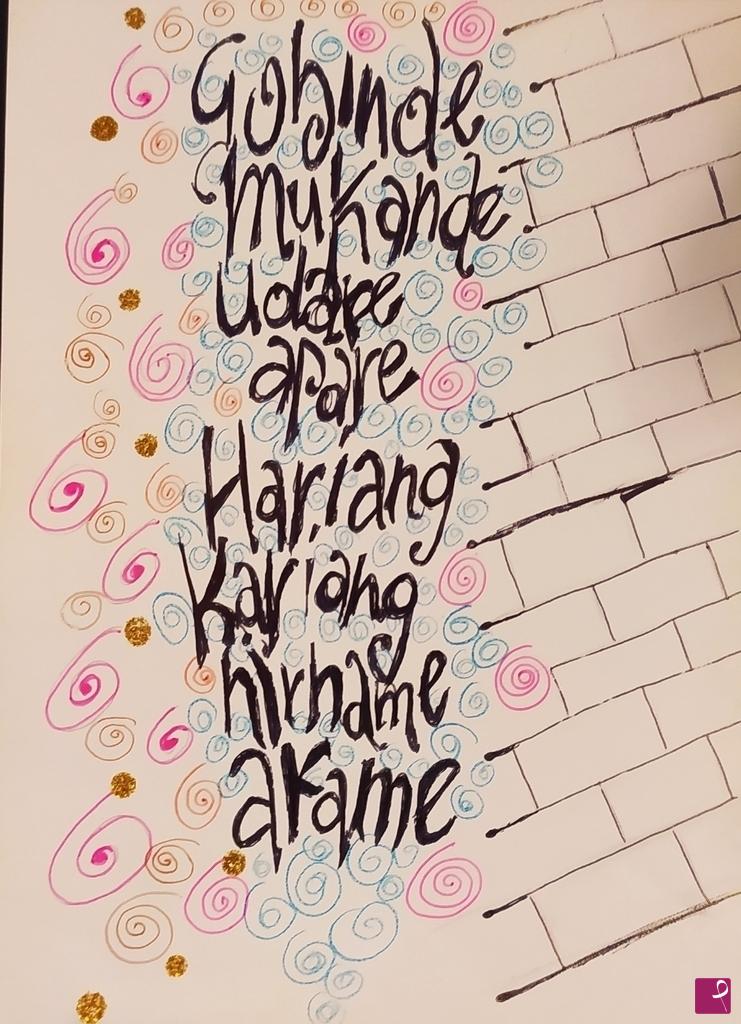 Gobinde
mukande
udare
apare
Hariang
Kariang
nirname
akame